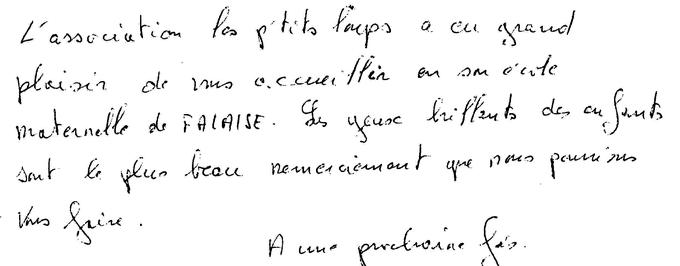 L'association les p'tits loups a eu grand
plaisir de vous accueillir en son école
maternelle de FALAISE. Les yeux brillants des enfants
sont le plus beau remerciement que nous pouvions
vous faire.
A une prochaine fois.